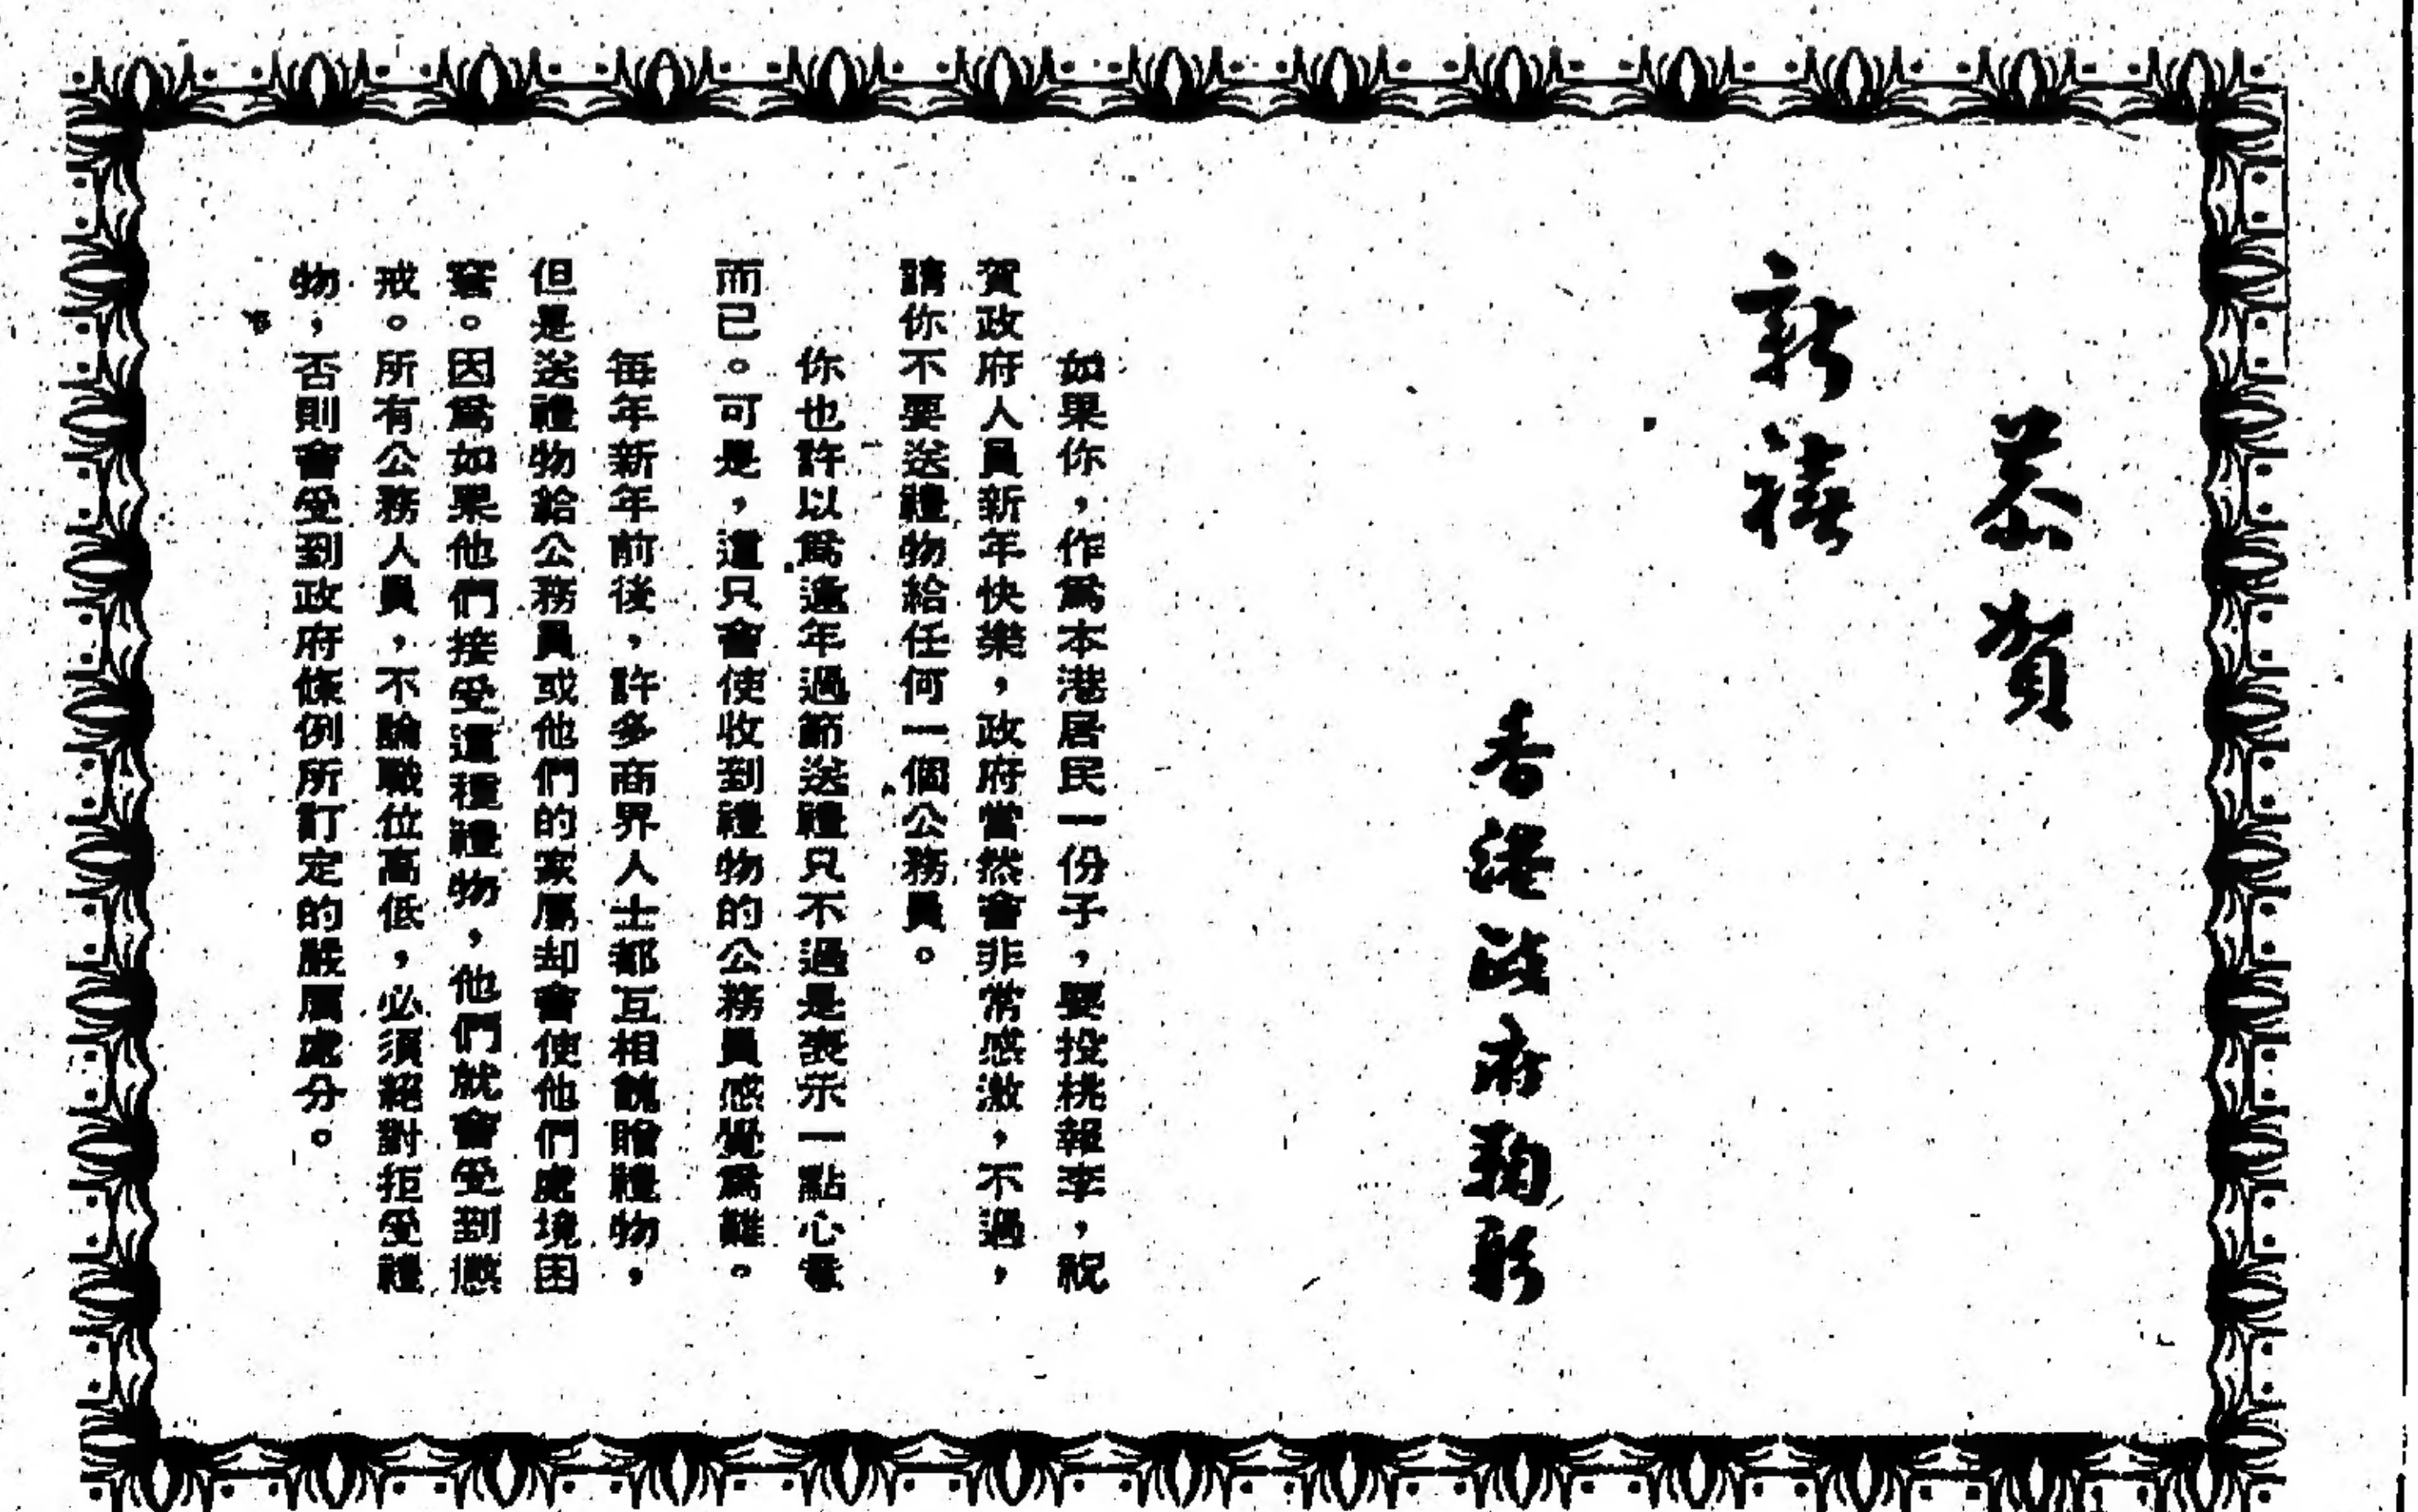 恭賀
新禧
香港政府鞠躬
如果你，作爲本港居民一份子，要投桃報李，祝
賀政府人員新年快樂，政府當然會非常感激，不過，
請你不要送禮物給任何一個公務員。
你也許以爲逢年過節送禮只不過是表示一點心意
而已。可是，這只會使收到禮物的公務員感覺爲難。
每年新年前後，許多商界人士都互相餽贈禮物，
但是送禮物給公務員或他們的家屬却會使他們處境困
窘。因爲如果他們接受這種禮物，他們就會受到懲
戒。所有公務人員，不論職位高低，必須絕對拒受禮
物，否則會受到政府條例所訂定的嚴厲處分。